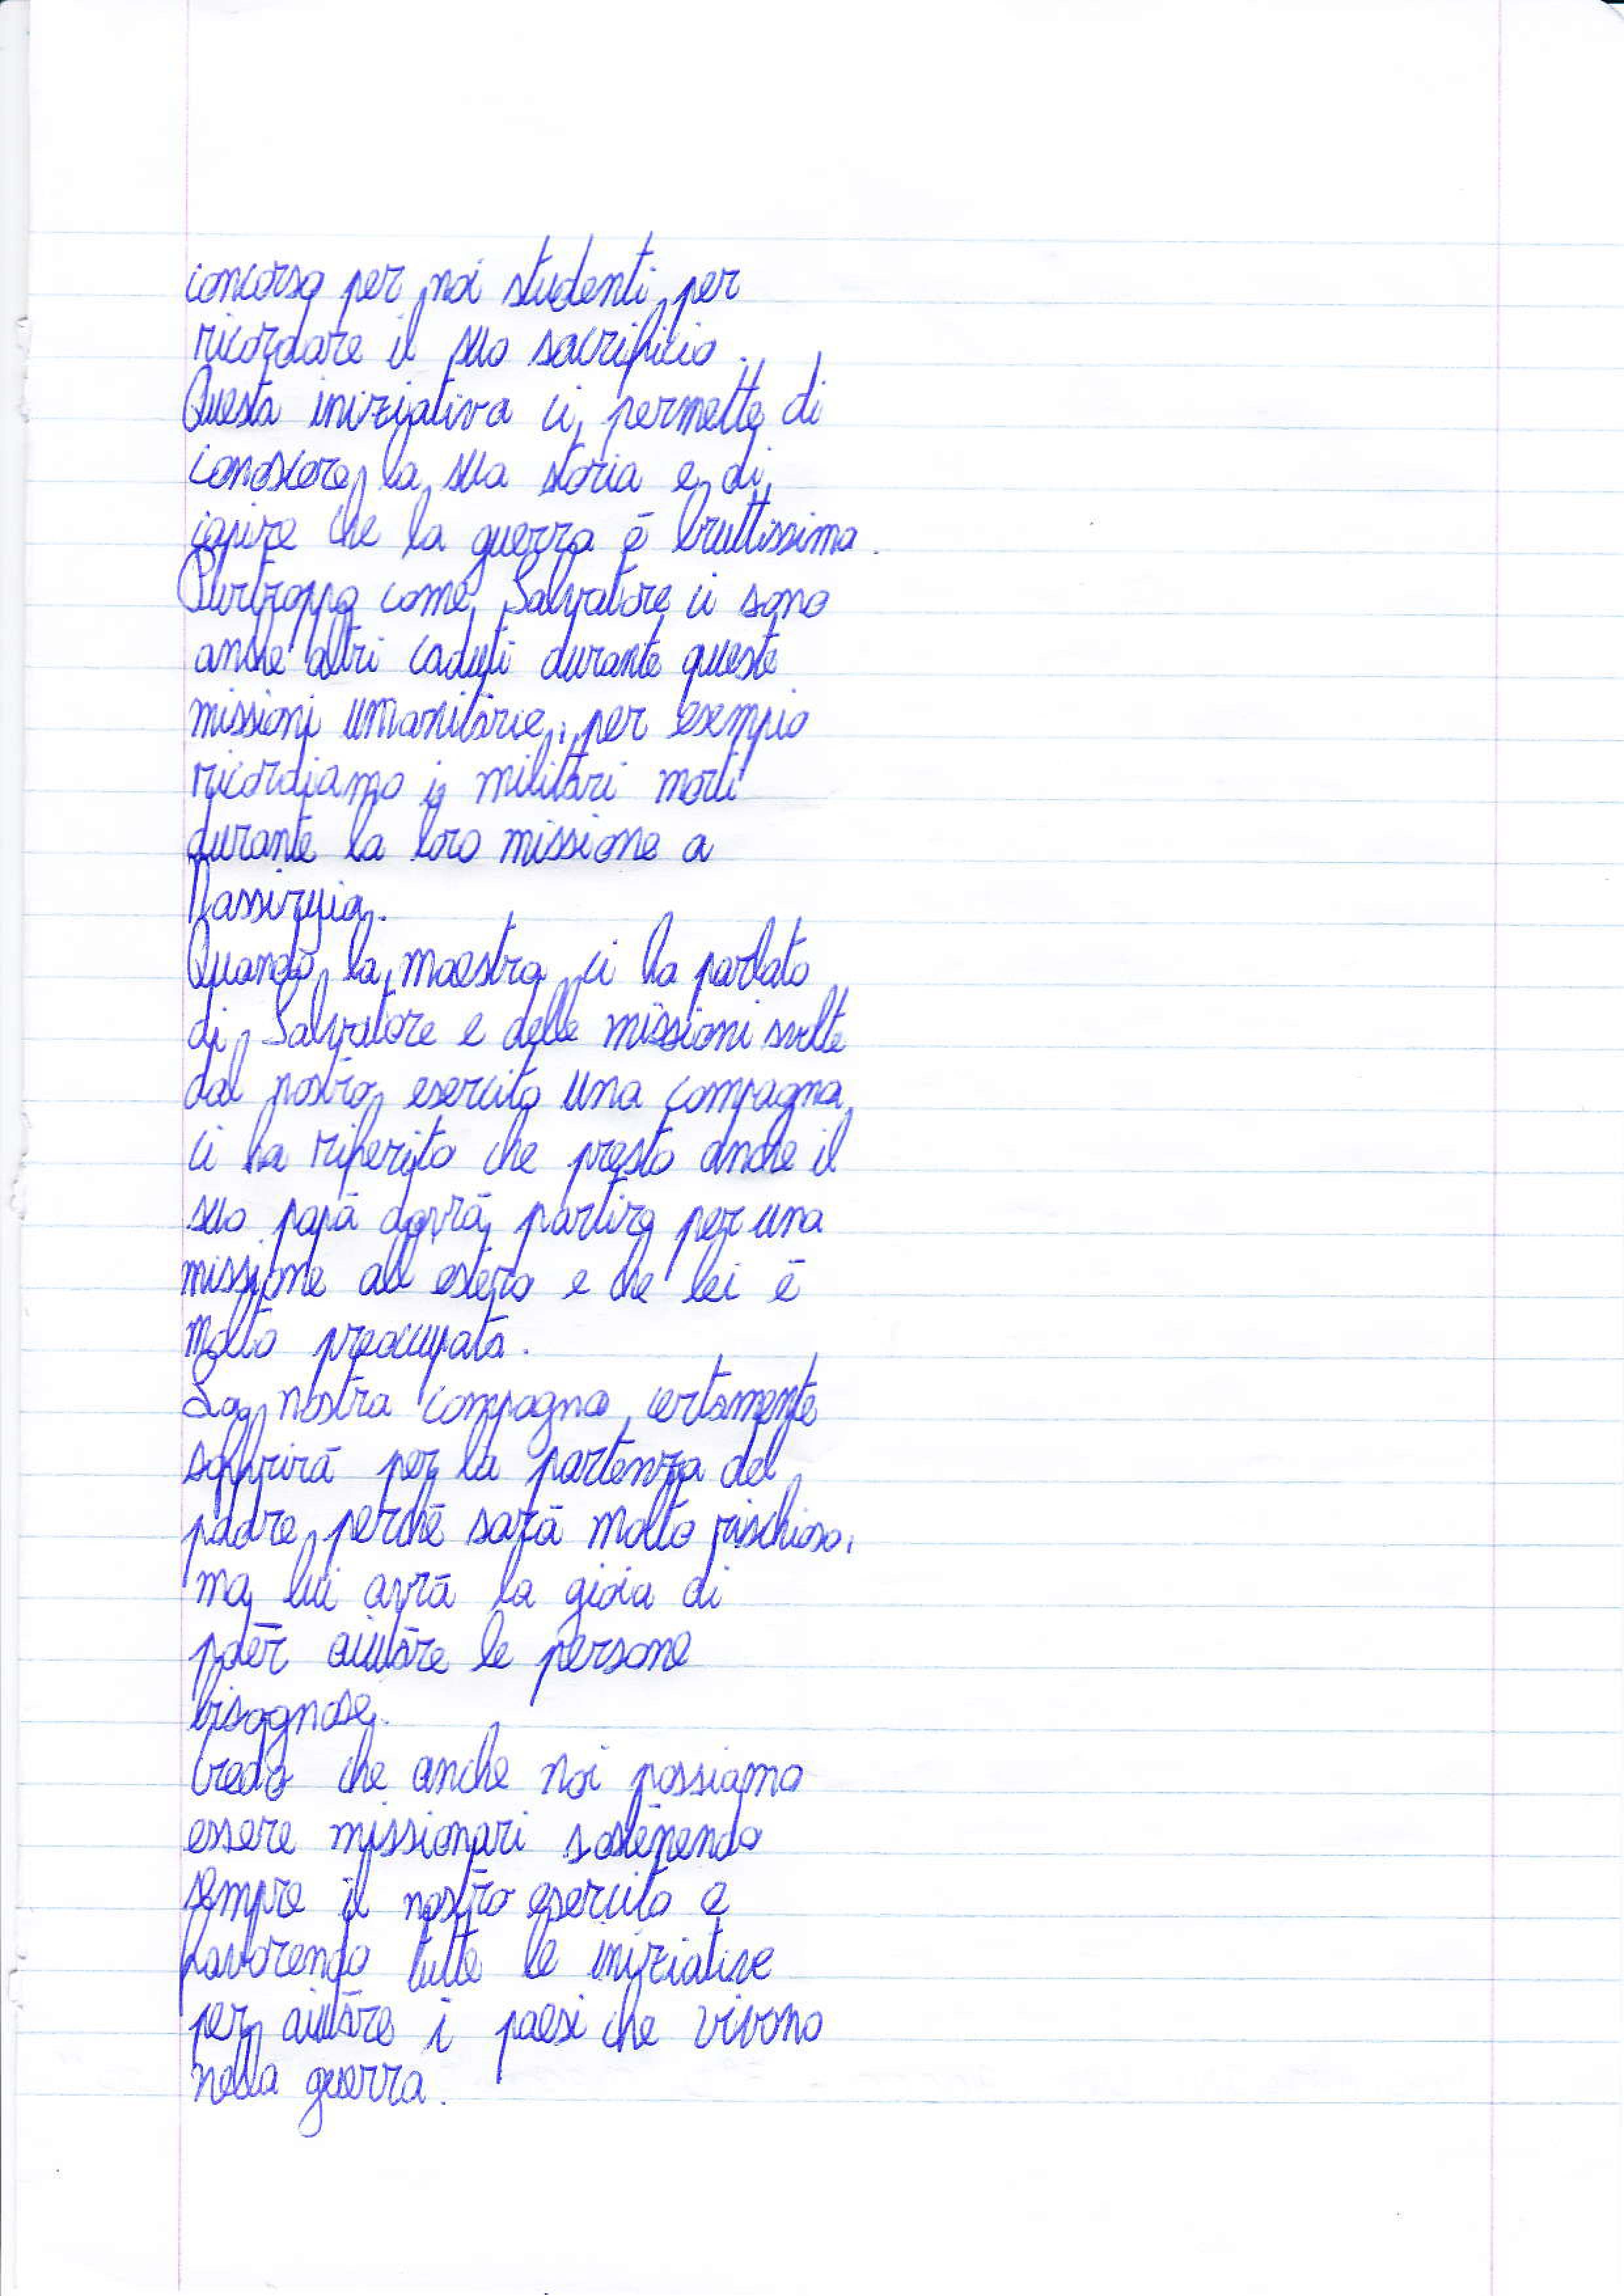 concorso per noi studenti per
ricordare il suo sacrificio.
Questa iniziativa ci permette di
conoscere la sua storia e di
capire che la guerra è bruttissima.
Purtroppo come Salvatore ci sono
anche altri caduti durante queste
missioni umanitarie, per esempio
ricordiamo i militari morti
durante la loro missione a
Nassiryia.
Quando la maestra ci ha parlato
di Salvatore e delle missioni svolte
dal nostro esercito una compagna
ci ha riferito che presto anche il
suo papà dovrà partire per una
missione all estero e che lei è
molto preoccupata.
La nostra compagna certamente
soffrirà per la partenza del
padre perchè sarà molto rischiosa,
ma lui avrà la gioia di
poter aiutare le persone
bisognose.
Credo che anche noi possiamo
essere missionari sostenendo
sempre il nostro esercito e
favorendo tutte le iniziative
per aiutare i paesi che vivono
nella guerra.